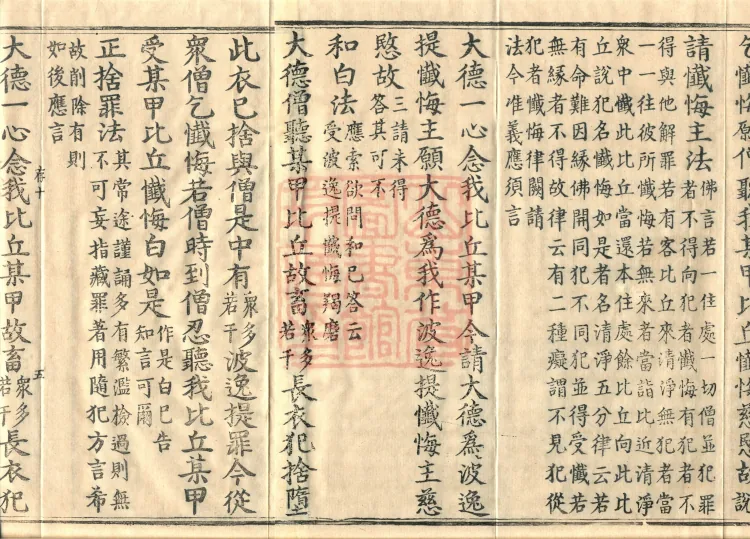 乞懺悔願僧聽我某甲比丘懺悔慈愍故說
請懺悔主法佛言若一住處一切僧並犯罪
者不得向犯者懺悔有犯者不
得與他解罪若有客比丘來清淨無犯者當
一一往彼所懺悔若無來者當詣比近清淨
衆中懺此比丘當還本住處餘比丘向此比
丘說犯名懺悔如是者名清淨五分律云若
有命難因緣佛開同犯不同犯並得受懺若
無緣者不得故律云有二種癡謂不見犯從
犯者懺悔律闕請
法今准義應須言
大德一心念我比丘某甲今請大德爲波逸
提懺悔主願大德爲我作波逸提懺悔主慈
愍故三請未得答其可不
和白法應索欲問和已答云受波逸提懺悔羯磨
大德僧聽某甲比丘故畜衆多若干長衣犯捨墮
此衣已捨與僧是中有衆多若干波逸提罪今從
衆僧乞懺悔若僧時到僧忍聽我比丘某甲
受某甲比丘懺悔白如是作是白已告知言可爾
正捨罪法其常途謹誦多有繁濫撿過則無
不可妄指藏罪著用隨犯方言希
故削除有則
如後應言
卷十 五
大德一心念我比丘某甲故畜衆多若干長衣犯